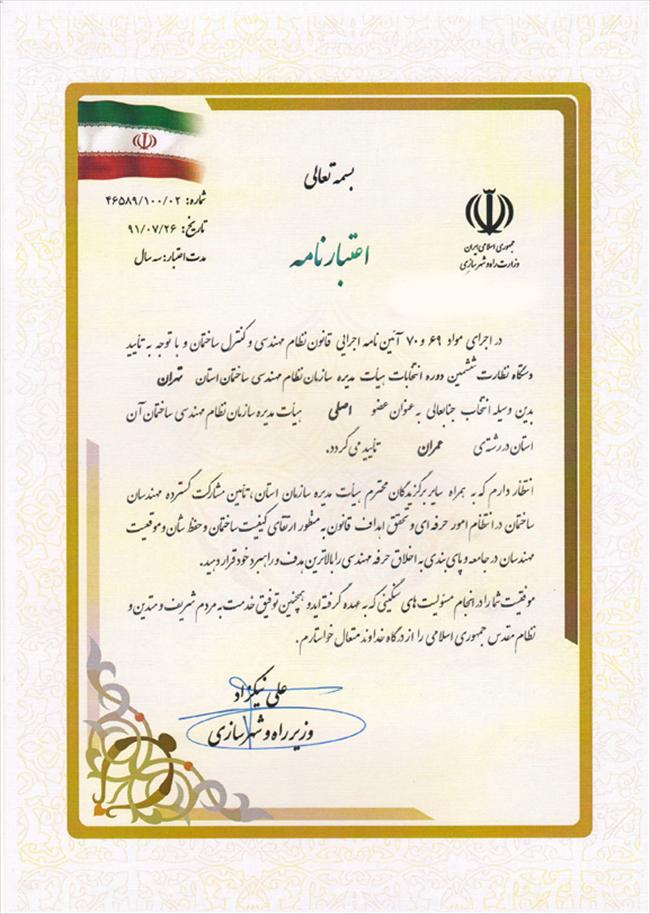 بسمه تعالی
جمهوری اسلامی ایران
وزارت راه و شهرسازی
شماره: ۴۶۵۸۹/۱۰۰/۰۲
تاریخ: ۹۱/۰۷/۲۶
مدت اعتبار: سه سال
اعتبارنامه
در اجرای مواد ۶۹ و ۷۰ آئین نامه اجرایی قانون نظام مهندسی و کنترل ساختمان و با توجه به تأیید
دستگاه نظارت ششمین دوره انتخابات هیأت مدیره سازمان نظام مهندسی ساختمان استان تهران
بدین وسیله انتخاب جنابعالی به عنوان عضو اصلی هیأت مدیره سازمان نظام مهندسی ساختمان آن
استان در رشته‌ی عمران تأیید می گردد.
انتظار دارم که به همراه سایر برگزیدگان محترم هیأت مدیره سازمان استان، تأمین مشارکت گسترده مهندسان
ساختمان در انتظام امور حرفه ای و تحقق اهداف قانون به منظور ارتقای کیفیت ساختمان و حفظ شأن و موقعیت
مهندسان در جامعه و پای بندی به اخلاق حرفه مهندسی را بالاترین هدف و راهبرد خود قرار دهید.
موفقیت شما را در انجام مسئولیت های سنگینی که به عهده گرفته اید و همچنین توفیق خدمت به مردم شریف و متدین و
نظام مقدس جمهوری اسلامی را از درگاه خداوند متعال خواستارم.
علی نیکزاد
وزیر راه و شهرسازی